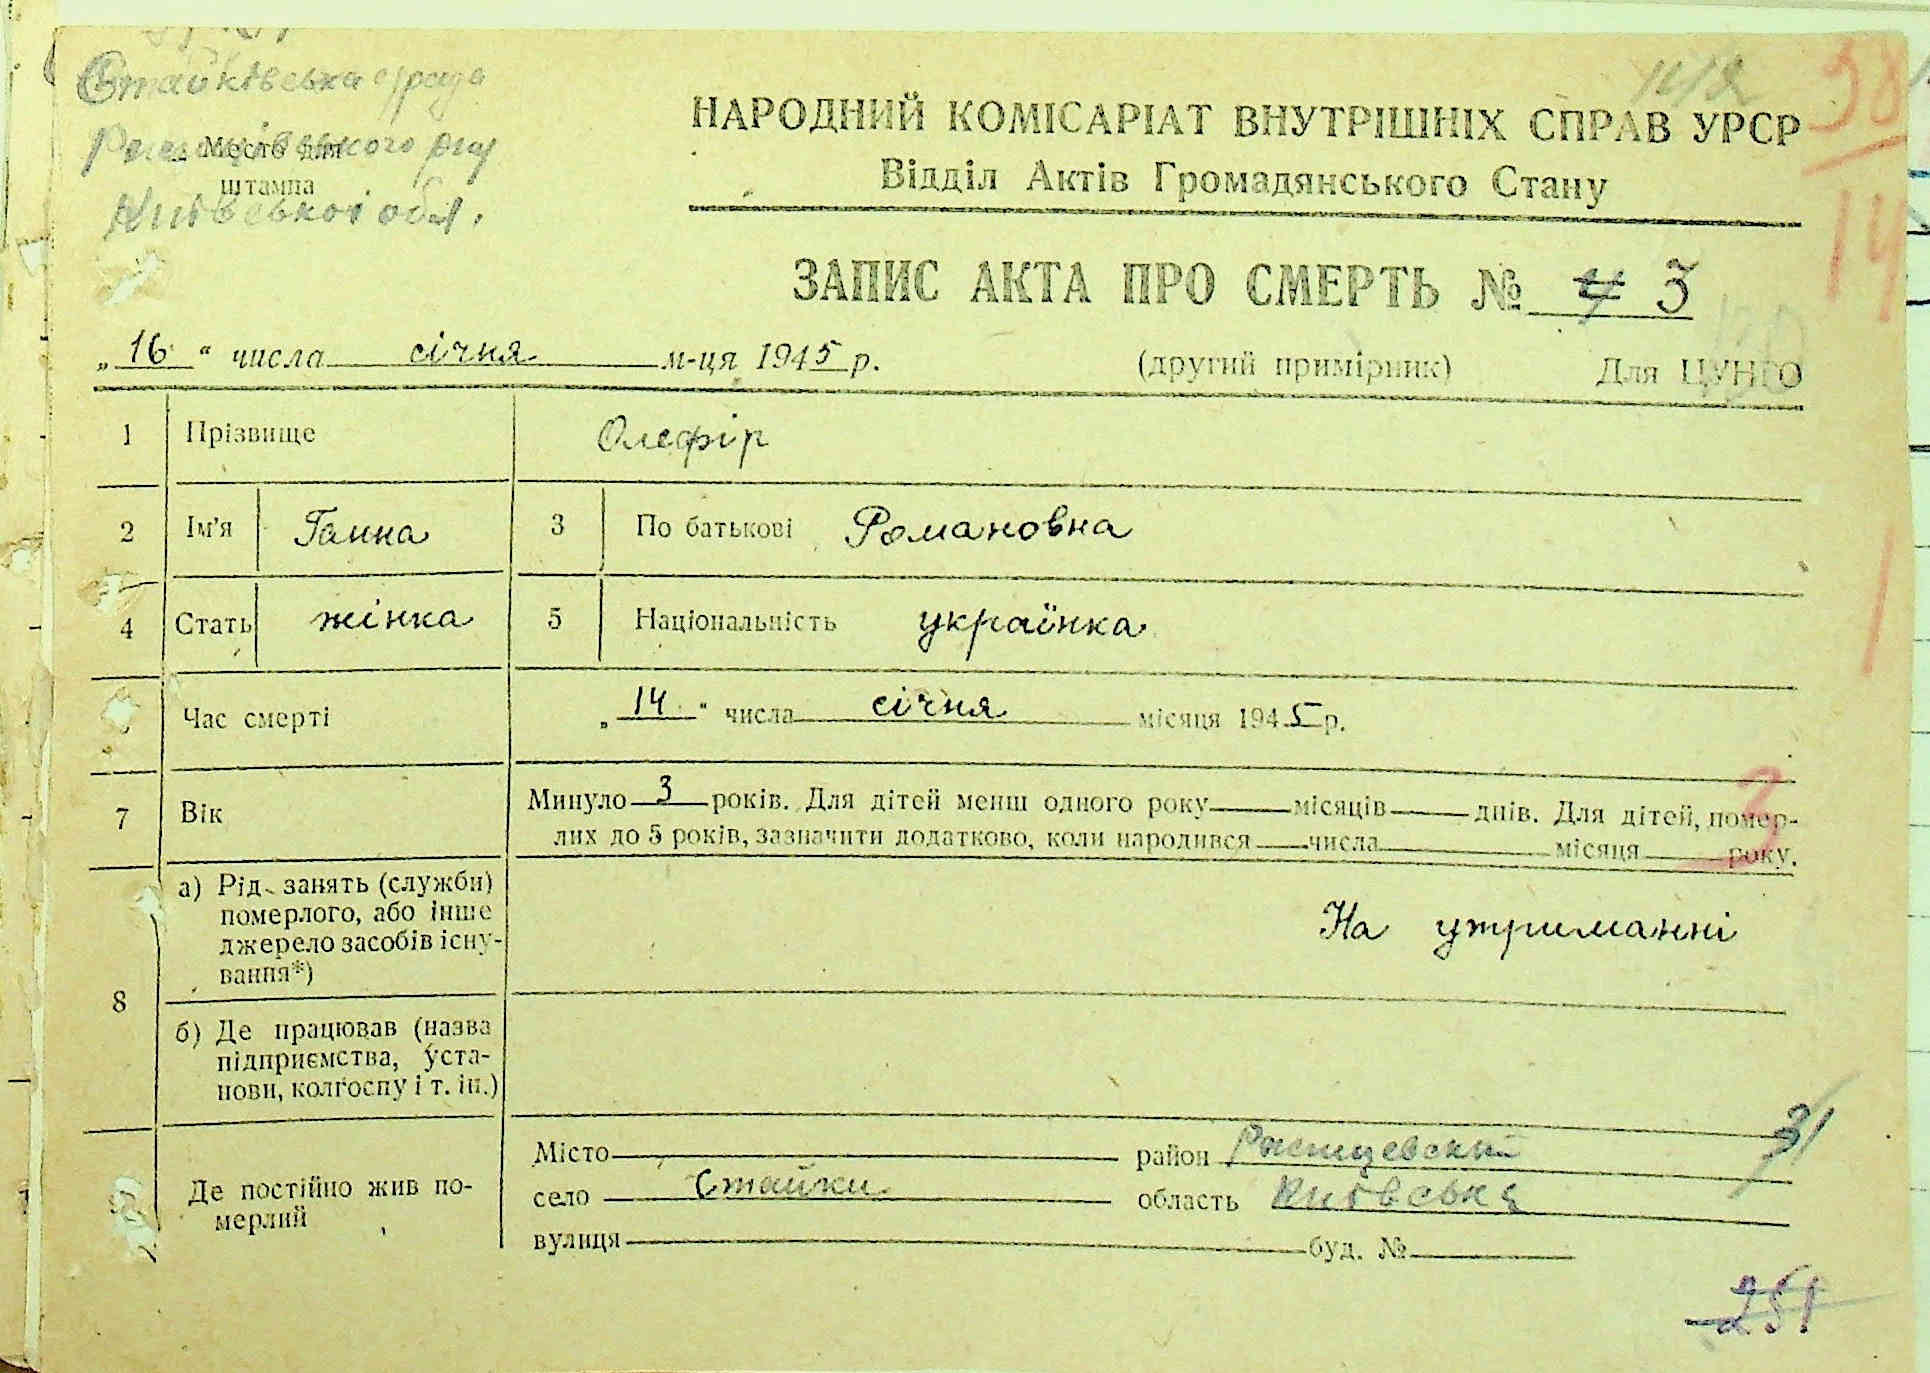 Стайківська с/рада
Место для
штампа
Київської обл.
НАРОДНИЙ КОМІСАРІАТ ВНУТРІШНІХ СПРАВ УРСР
Відділ Актів Громадянського Стану
38
14
ЗАПИС АКТА ПРО СМЕРТЬ № 4 3
„16“ числа січня м-ця 1945 р.
(другий примірник) Для ЦУНГО
1 Прізвище Олефір
2 Ім'я Ганна 3 По батькові Романовна
4 Стать жінка 5 Національність українка
Час смерті „14“ числа січня місяця 1945 р.
7 Вік Минуло 3 років. Для дітей менш одного року місяців днів. Для дітей, помер-
лих до 5 років, зазначити додатково, коли народився числа місяця року.
8 а) Рід занять (служби)
померлого, або інше
джерело засобів існу-
вання*)
На утриманні
б) Де працював (назва
підприємства, уста-
нови, колгоспу і т. ін.)
31
9 Де постійно жив по-
мерлий
Місто район
село Стайки область Київська
вулиця буд. №
251